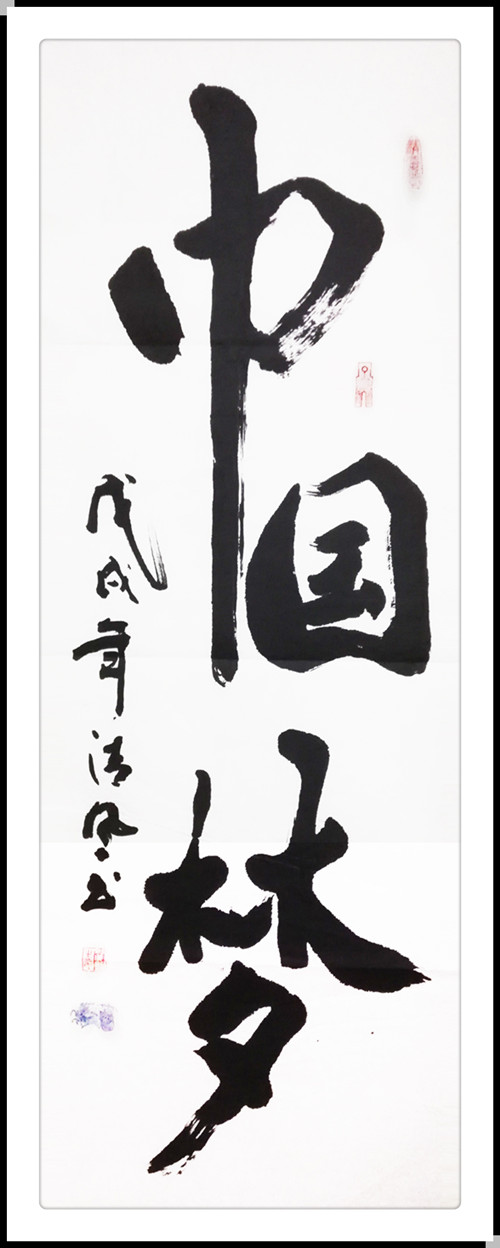 中国梦
戊戌年清风书